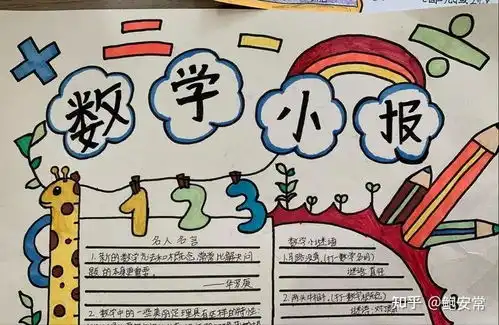 数学小报
1 2 3
名人名言
1. 新的数学方法和概念,常常比解决问
题的本身更重要。
——华罗庚
2. 数学中的一些美丽定理具有这样的特性:
数学小谜语
1. 月路没离。(打一数学名词)
谜底:直径
2. 两头牛打架。(打一数学概念)
谜底:对顶角
知乎 @鲍安常